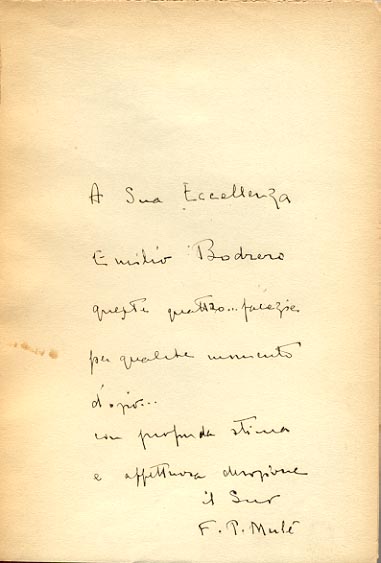 A Sua Eccellenza
Emilio Bodrero
queste quattro... facezie
per qualche momento
d'ozio...
con profonda stima
e affettuosa devozione
il Suo
F. P. Mulè